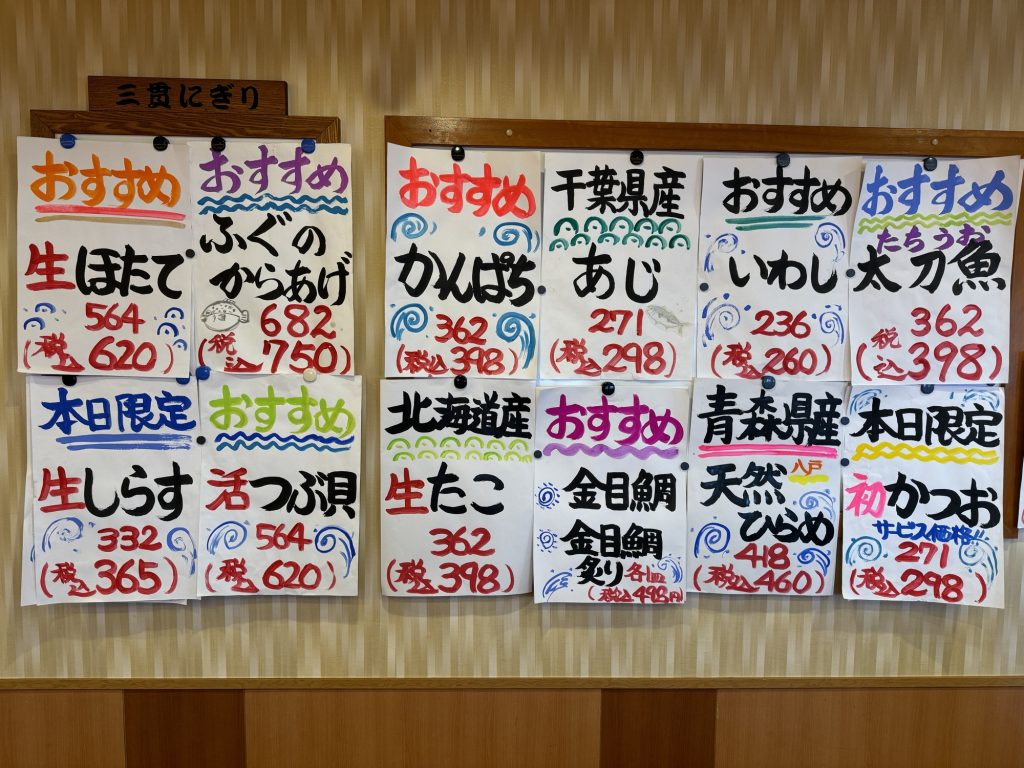 三貫にぎり
おすすめ
生ほたて
564
(税込620)
おすすめ
ふぐの
からあげ
682
(税込750)
おすすめ
かんぱち
362
(税込398)
千葉県産
あじ
271
(税込298)
おすすめ
いわし
236
(税込260)
おすすめ
たちうお
太刀魚
362
(税込398)
本日限定
生しらす
332
(税込365)
おすすめ
活つぶ貝
564
(税込620)
北海道産
生たこ
362
(税込398)
おすすめ
金目鯛
金目鯛
炙り 各1皿
(税込498円)
青森県産
八戸
天然
ひらめ
418
(税込460)
本日限定
初かつお
サービス価格!!
271
(税込298)